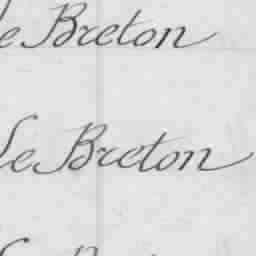 le Breton
le Breton